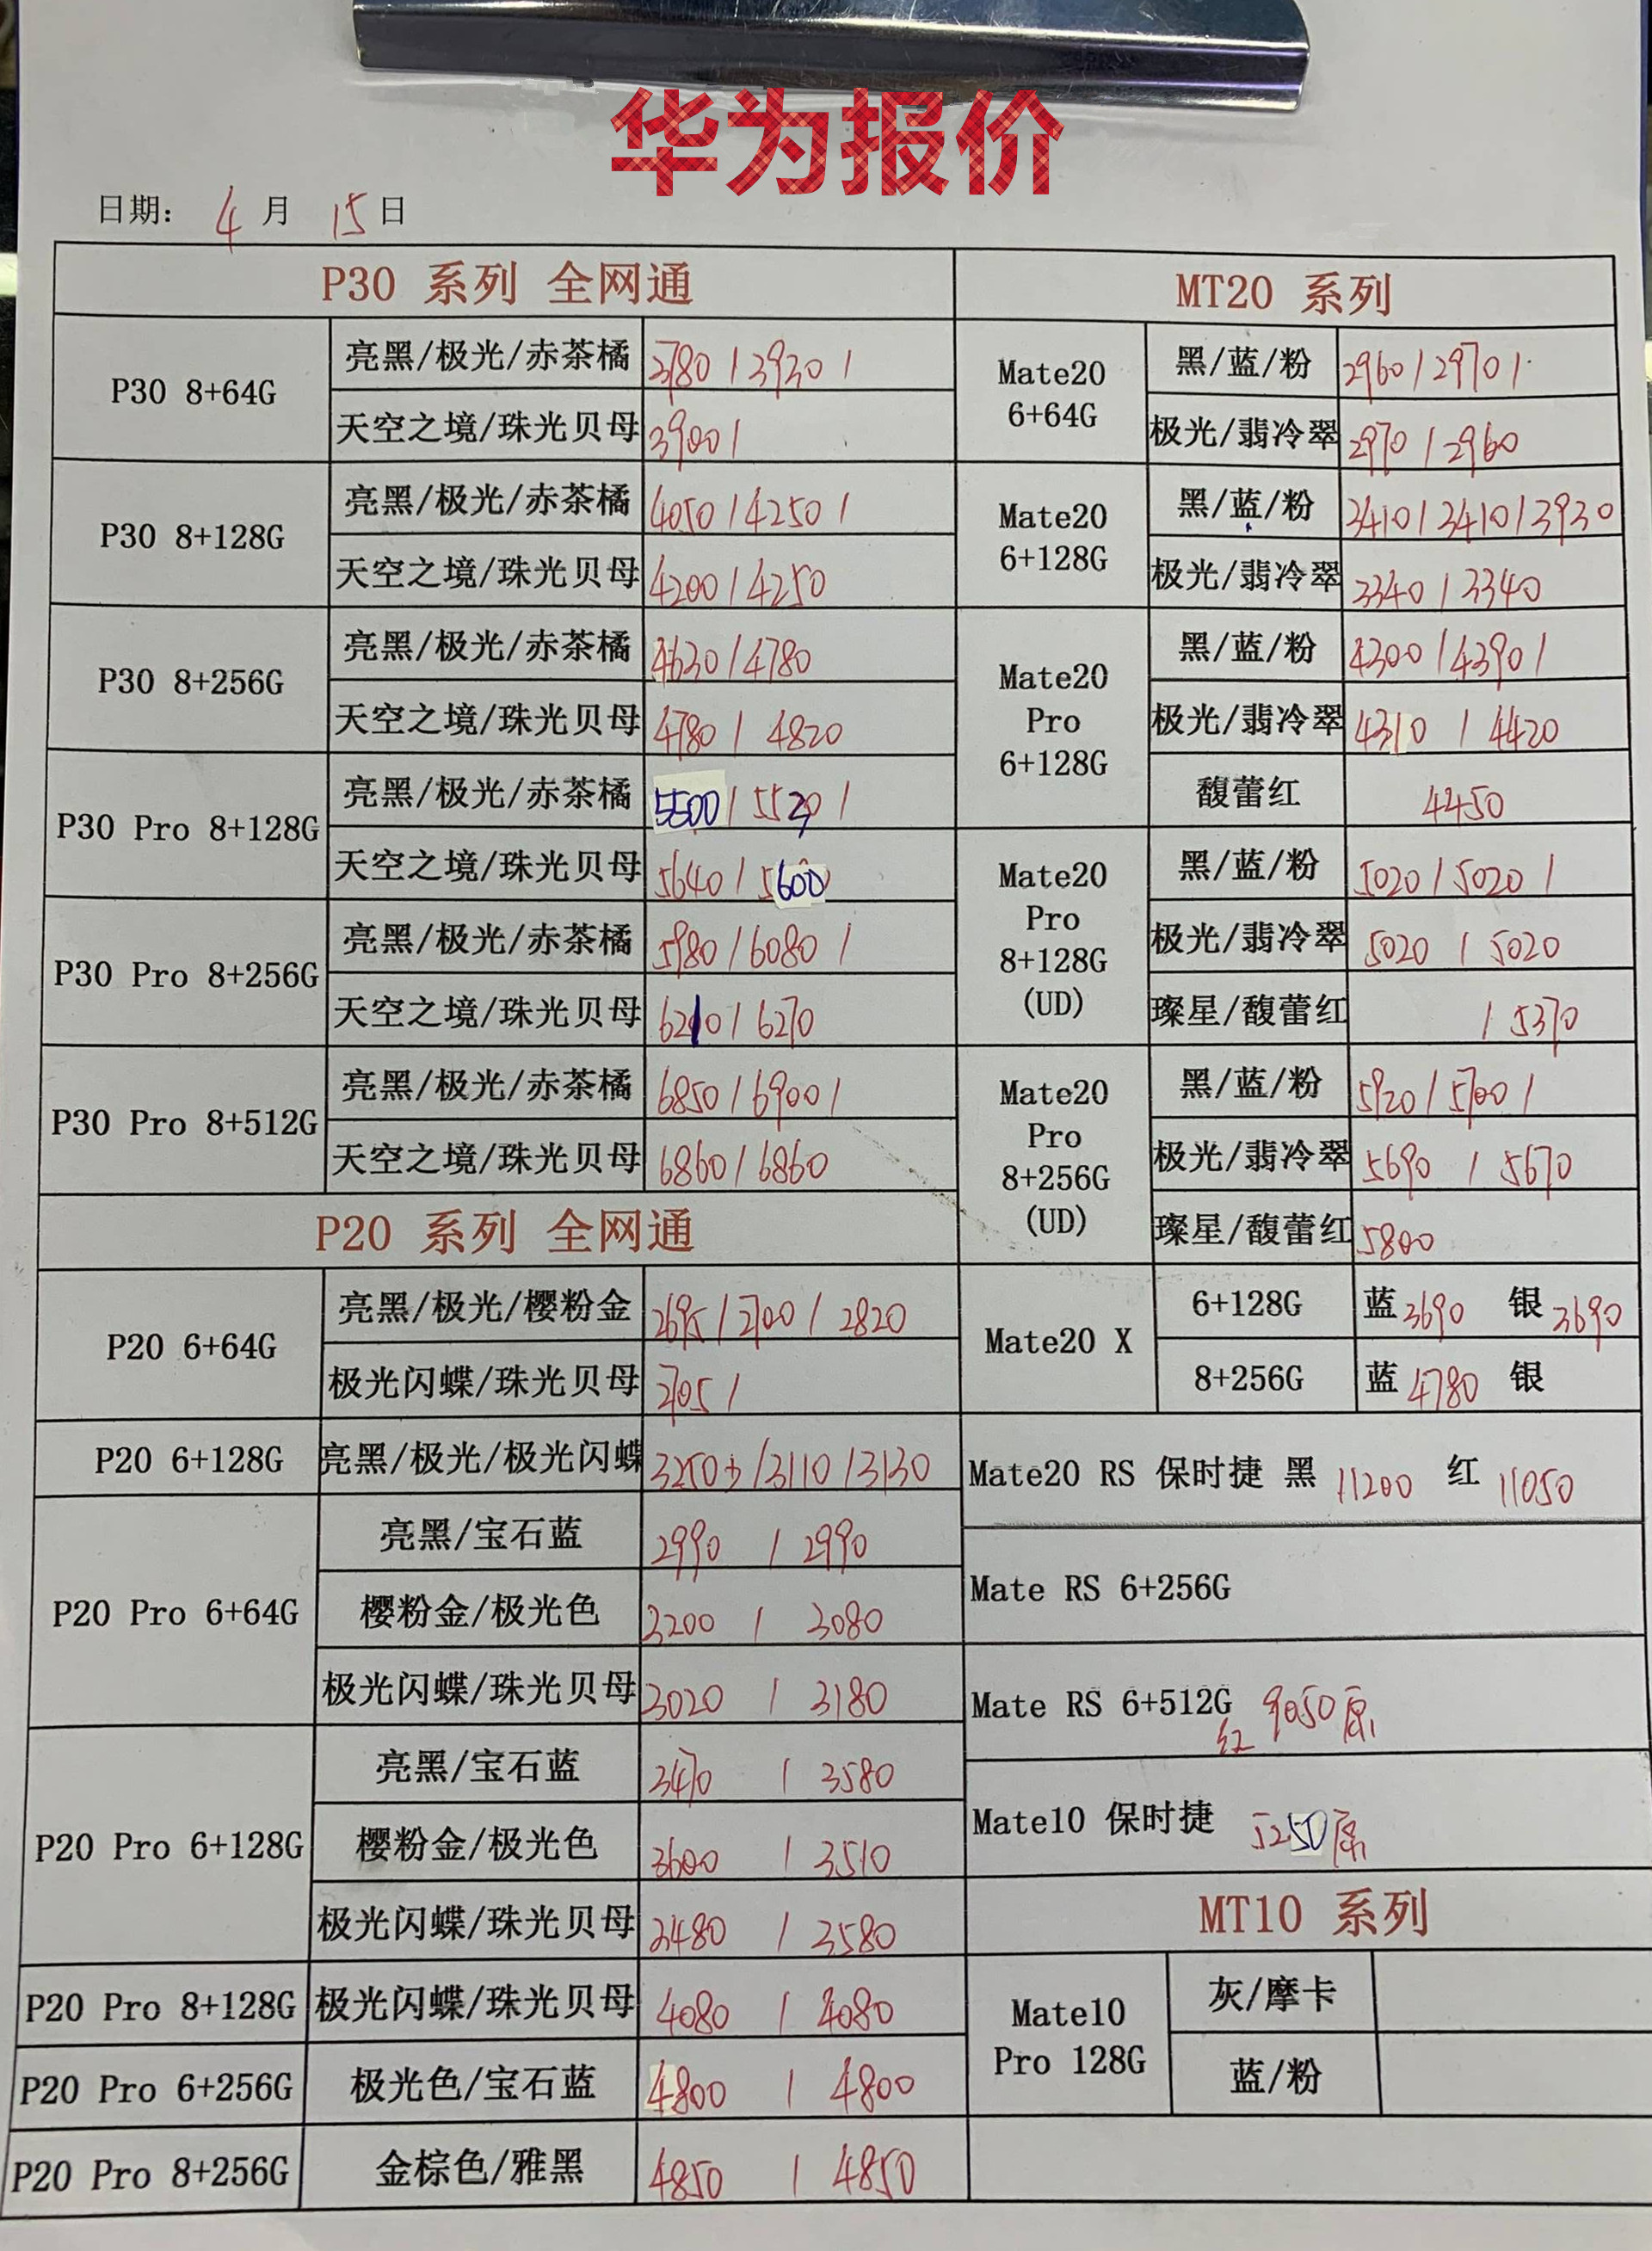 华为报价
日期： 4 月 15 日
P30 系列 全网通
P30 8+64G
亮黑/极光/赤茶橘 3780 / 3930 /
天空之境/珠光贝母 3900 /
P30 8+128G
亮黑/极光/赤茶橘 4050 / 4250 /
天空之境/珠光贝母 4200 / 4250
P30 8+256G
亮黑/极光/赤茶橘 4630 / 4780
天空之境/珠光贝母 4780 / 4820
P30 Pro 8+128G
亮黑/极光/赤茶橘 5500 / 5520 /
天空之境/珠光贝母 5640 / 5600
P30 Pro 8+256G
亮黑/极光/赤茶橘 5980 / 6080 /
天空之境/珠光贝母 6210 / 6270
P30 Pro 8+512G
亮黑/极光/赤茶橘 6850 / 6900 /
天空之境/珠光贝母 6860 / 6860
P20 系列 全网通
P20 6+64G
亮黑/极光/樱粉金 2695 / 2700 / 2820
极光闪蝶/珠光贝母 2705 /
P20 6+128G
亮黑/极光/极光闪蝶 3250 / 3110 / 3130
P20 Pro 6+64G
亮黑/宝石蓝 2990 / 2990
樱粉金/极光色 3200 / 3080
极光闪蝶/珠光贝母 3020 / 3180
P20 Pro 6+128G
亮黑/宝石蓝 3470 / 3580
樱粉金/极光色 3600 / 3510
极光闪蝶/珠光贝母 3480 / 3580
P20 Pro 8+128G
极光闪蝶/珠光贝母 4080 / 4080
P20 Pro 6+256G
极光色/宝石蓝 4800 / 4800
P20 Pro 8+256G
金棕色/雅黑 4850 / 4850
MT20 系列
Mate20
6+64G
黑/蓝/粉 2960 / 2970 /
极光/翡冷翠 2970 / 2960
Mate20
6+128G
黑/蓝/粉 3410 / 3410 / 3930
极光/翡冷翠 3340 / 3340
Mate20
Pro
6+128G
黑/蓝/粉 4300 / 4390 /
极光/翡冷翠 4310 / 4420
馥蕾红 4450
Mate20
Pro
8+128G
(UD)
黑/蓝/粉 5020 / 5020 /
极光/翡冷翠 5020 / 5020
璨星/馥蕾红 / 5370
Mate20
Pro
8+256G
(UD)
黑/蓝/粉 5920 / 5700 /
极光/翡冷翠 5690 / 5670
璨星/馥蕾红 5800
Mate20 X
6+128G 蓝 3690 银 3690
8+256G 蓝 4780 银
Mate20 RS 保时捷 黑 11200 红 11050
Mate RS 6+256G
Mate RS 6+512G 红 9050 原
Mate10 保时捷 5250 原
MT10 系列
Mate10
Pro 128G
灰/摩卡
蓝/粉